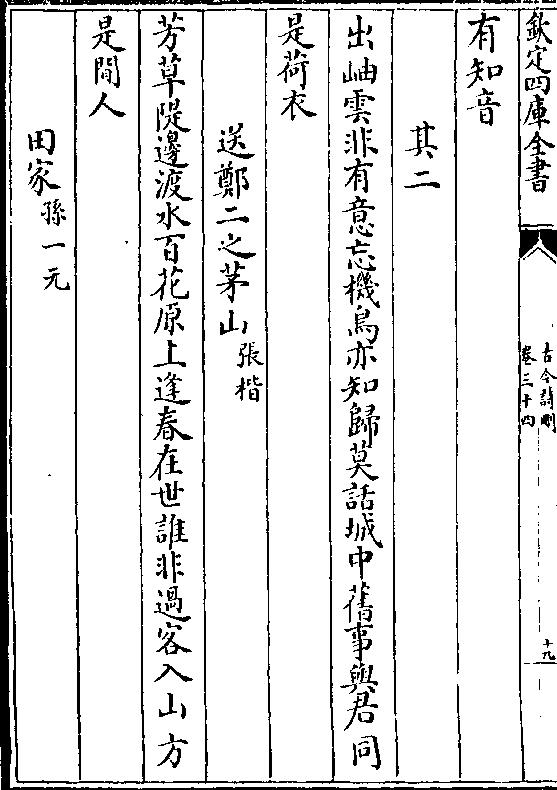 欽定四庫全書
古今詩刪
卷三十四
十九
有知音
其二
出岫雲非有意忘機鳥亦知歸莫話城中舊事與君同
是荷衣
送鄭二之茅山 張楷
芳草隄邊渡水百花原上逢春在世誰非過客入山方
是閒人
田家 孫一元